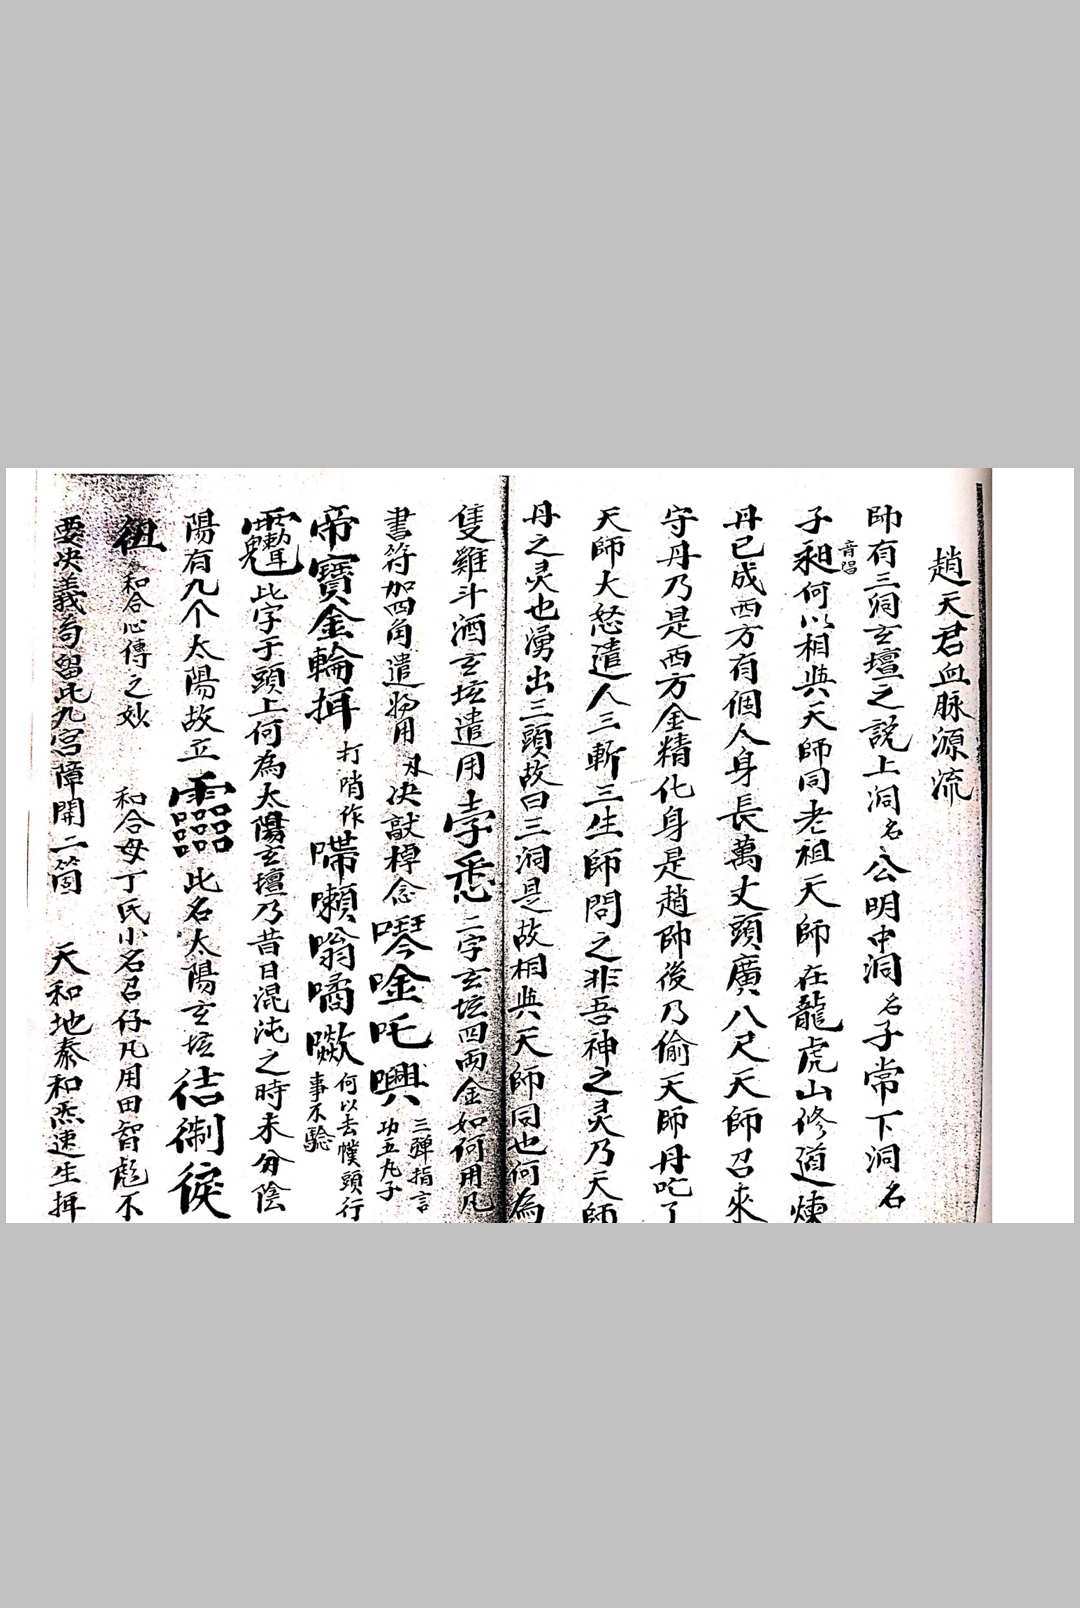 趙天君血脉源流
帥有三洞玄壇之說上洞名公明中洞名子常下洞名
子昶音昌何以相與天師同老祖天師在龍虎山修道煉
丹已成西方有個人身長萬丈頭廣八尺天師召來
守丹乃是西方金精化身是趙帥後乃偷天師丹吃了
天師大怒遣人三斬三生師問之非吾神之灵乃天師
丹之灵也湧出三頭故曰三洞是故相與天師同也何為
隻雞斗酒玄坛遣用 悉二字玄坛四両金如何用凡
書符加四角遣將用 决敲棹念 唫吒 三弹指言功五九子
帝寶金輪揖打哨作 嚩 嗡噊 何以去幞頭行事不驗
此字于頭上何為太陽玄壇乃昔日混沌之時未分陰
陽有九个太陽故立 此名太陽玄坛
祖 和合心傳之妙 和合母丁氏小名召仔凡用田智彪不
要决義 留此九宫 開二箇 天和地泰和炁速生揖